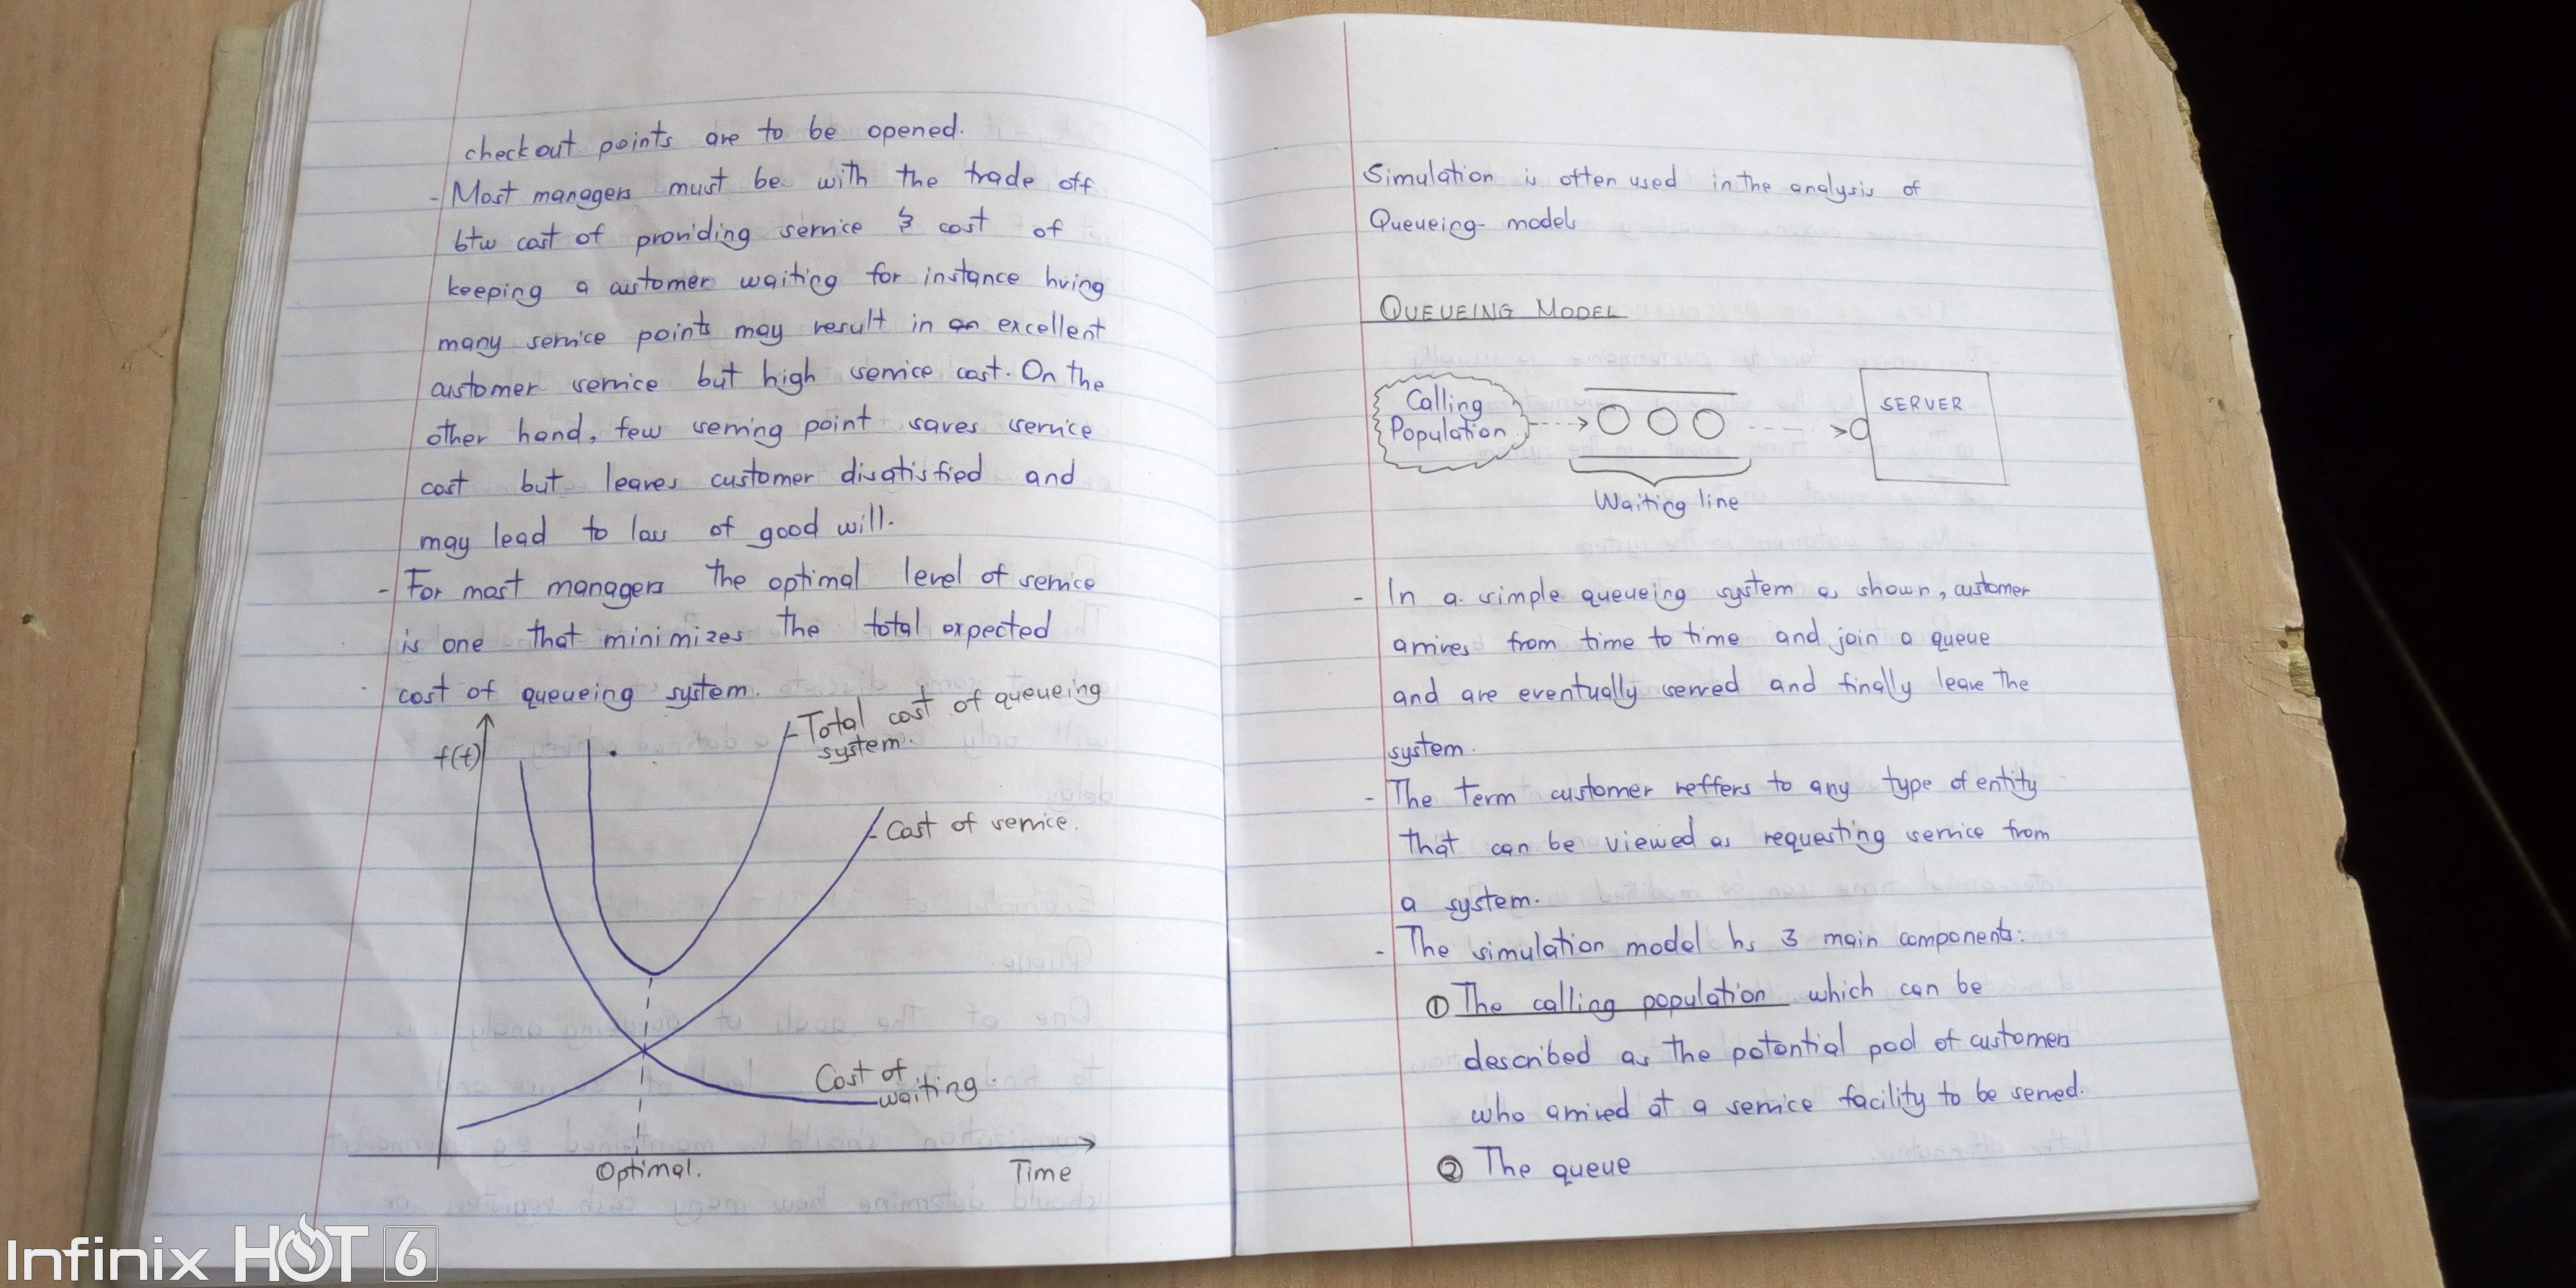 checkout points are to be opened.
- Most managers must be with the trade off
btw cost of providing service & cost of
keeping a customer waiting for instance hving
many service points may result in an excellent
customer service but high service cost. On the
other hand, few serving point saves service
cost but leaves customer disatisfied and
may lead to loss of good will.
- For most managers the optimal level of service
is one that minimizes the total expected
cost of queueing system.
f(t)
Total cost of queueing
system.
Cost of service.
Cost of
waiting
Optimal.
Time
Simulation is often used in the analysis of
Queueing models
QUEUEING MODEL
Calling
Population
SERVER
Waiting line
- In a simple queueing system as shown, customer
arrives from time to time and join a queue
and are eventually served and finally leave the
system.
- The term customer reffers to any type of entity
that can be viewed as requesting service from
a system.
- The simulation model hs 3 main components:
① The calling population which can be
described as the potential pool of customers
who arrived at a service facility to be served.
② The queue
Infinix HOT 6